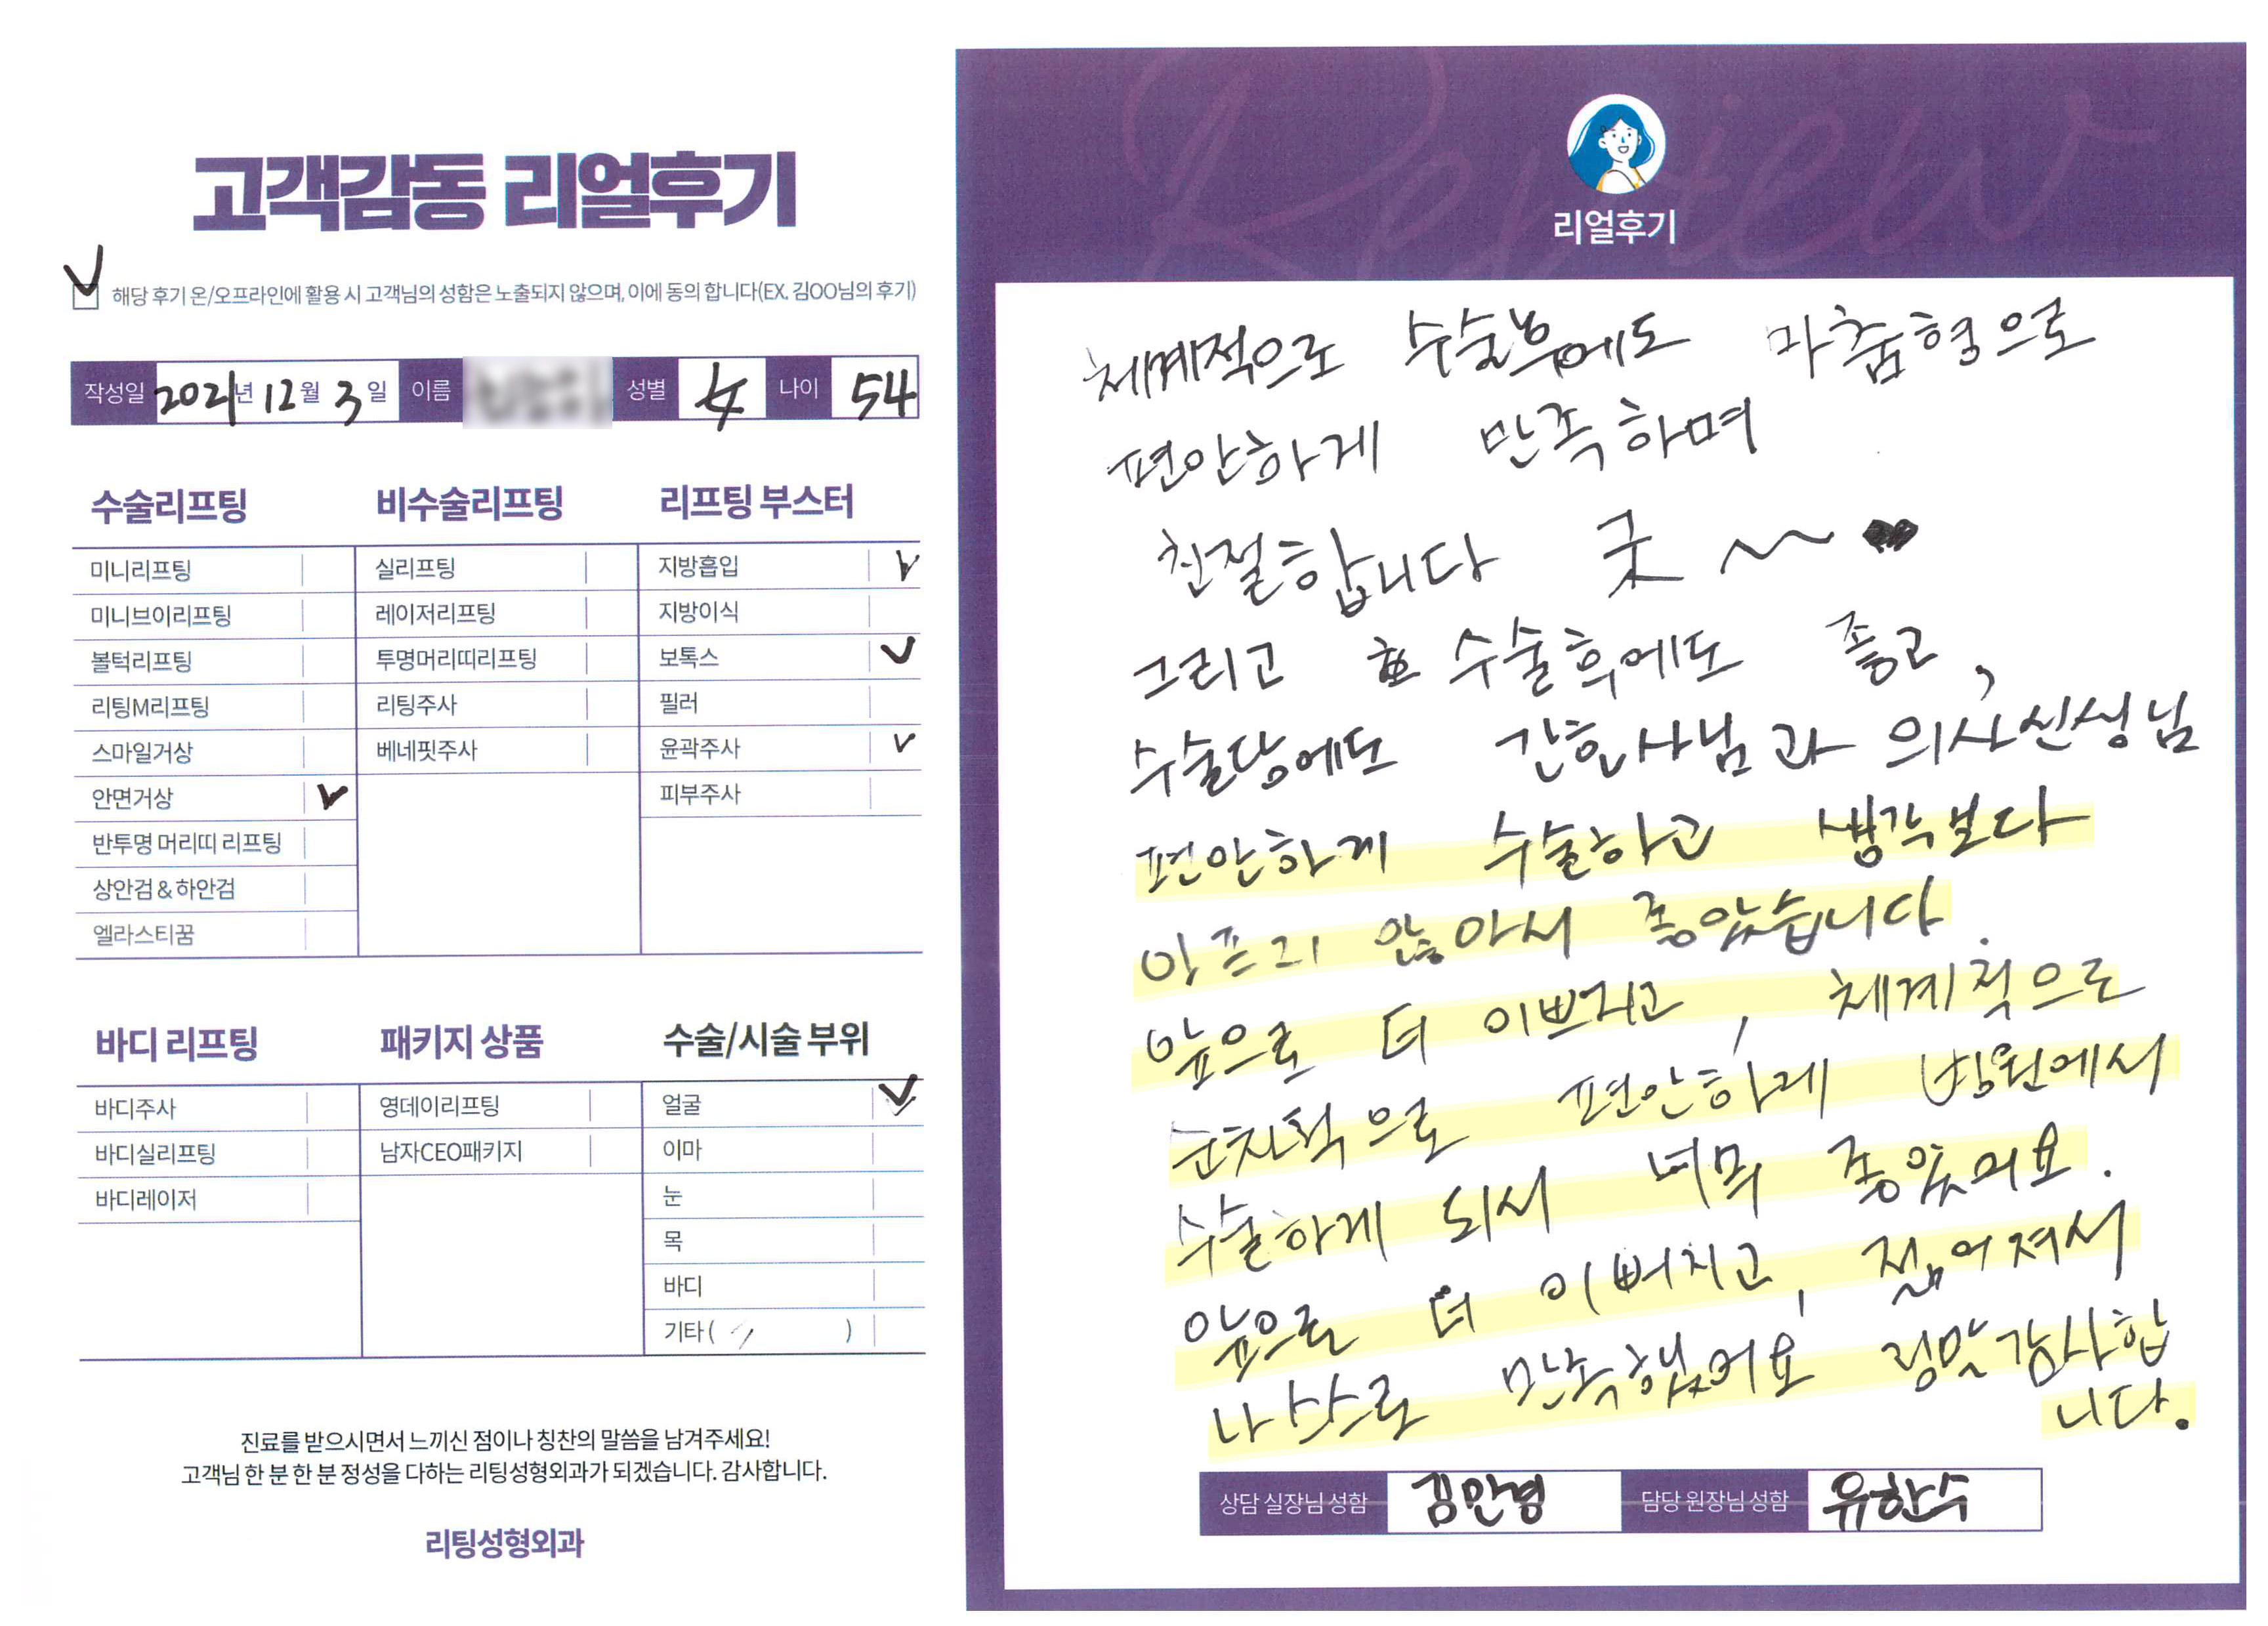 고객감동 리얼후기
해당 후기 온/오프라인에 활용 시 고객님의 성함은 노출되지 않으며, 이에 동의 합니다(EX. 김OO님의 후기)
작성일 2021년 12월 3일 이름 성별 여 나이 54
수술리프팅
미니리프팅
미니브이리프팅
볼턱리프팅
리팅M리프팅
스마일거상
안면거상
반투명 머리띠 리프팅
상안검 & 하안검
엘라스티꿈
비수술리프팅
실리프팅
레이저리프팅
투명머리띠리프팅
리팅주사
베네핏주사
리프팅 부스터
지방흡입
지방이식
보톡스
필러
윤곽주사
피부주사
바디 리프팅
바디주사
바디실리프팅
바디레이저
패키지 상품
영데이리프팅
남자CEO패키지
수술/시술 부위
얼굴
이마
눈
목
바디
기타( )
진료를 받으시면서 느끼신 점이나 칭찬의 말씀을 남겨주세요!
고객님 한 분 한 분 정성을 다하는 리팅성형외과가 되겠습니다. 감사합니다.
리팅성형외과
Review
리얼후기
체계적으로 수술후에도 마춤형으로
편안하게 만족하며
친절합니다 굿 ~ ♥
그리고 수술후에도 좋고,
수술당에도 간호사님과 의사선생님
편안하게 수술하고 생각보다
아프지 않아서 좋았습니다.
앞으로 더 이쁘지고, 체계적으로
순차적으로 편안하게 병원에서
수술하게 되서 너무 좋았어요.
앞으로 더 이뻐지고, 젊어져서
만족했어요 정말 감사합
니다.
상담 실장님 성함 김안영 담당 원장님 성함 유한수